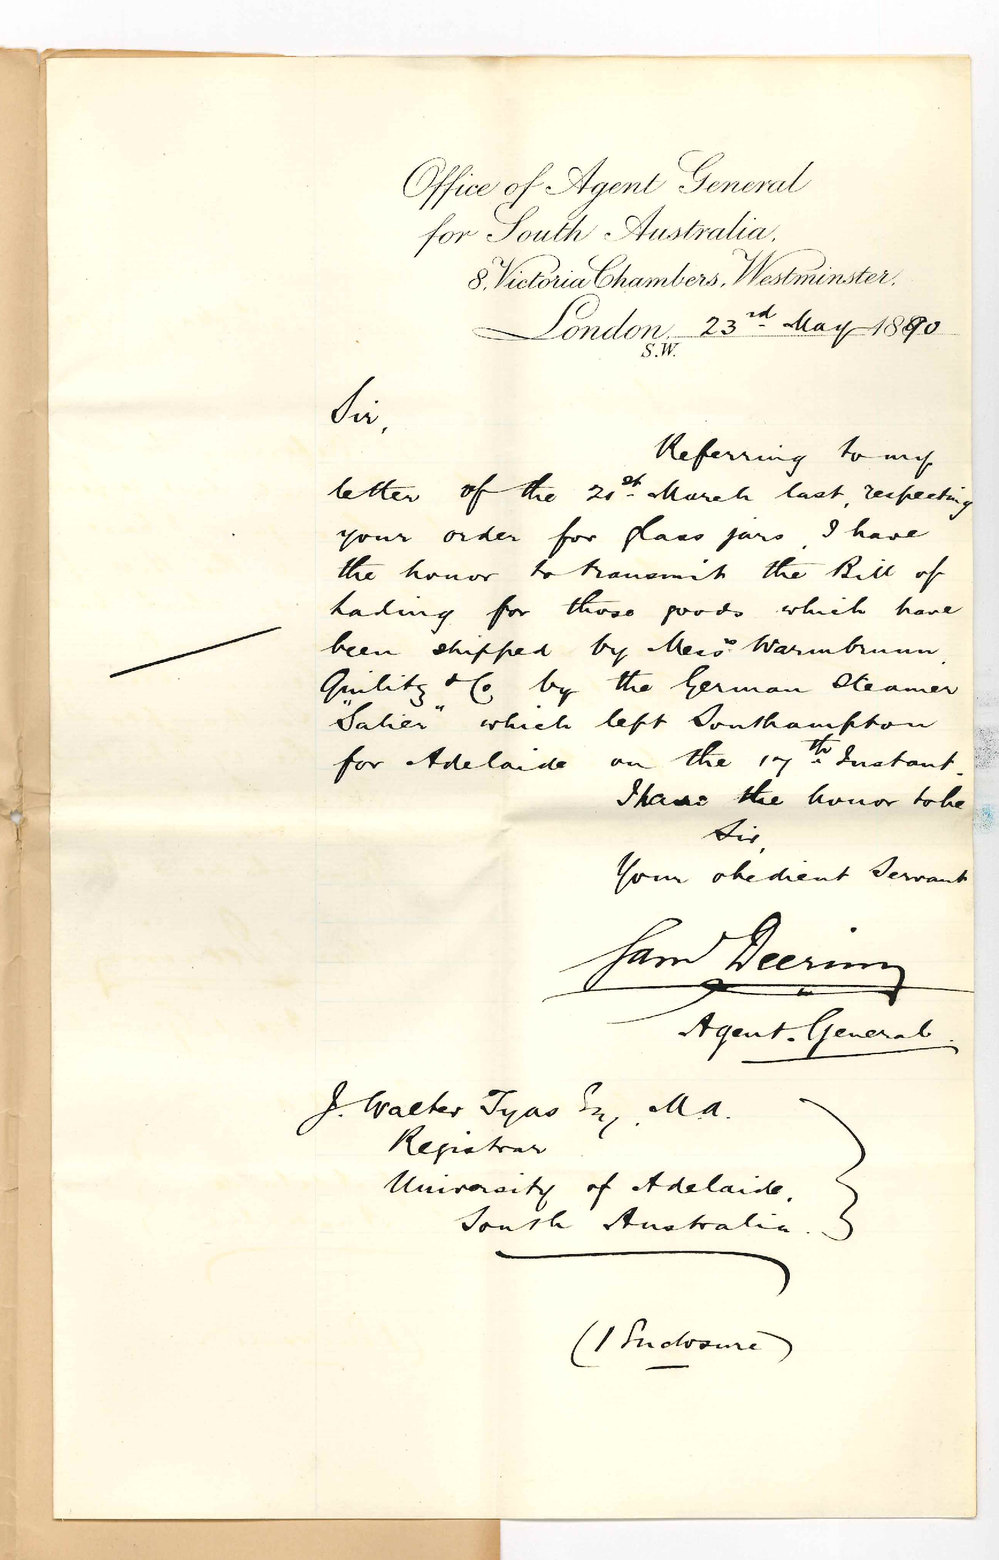 Office of Agent General
for South Australia,
8, Victoria Chambers, Westminster,
London, 23rd May 1890
S.W.
Sir,
Referring to my
letter of the 21st March last, respecting
your order for glass jars, I have
the honor to transmit the Bill of
Lading for those goods which have
been shipped by Messrs Warmbrunn,
Quilitz & Co by the German Steamer
"Salier" which left Southampton
for Adelaide on the 17th Instant.
I have the honor to be
Sir,
Your obedient Servant
Saml Deering
Agent-General.
J. Walter Tyas Esq, M.A.
Registrar
University of Adelaide,
South Australia.
(1 Enclosure)